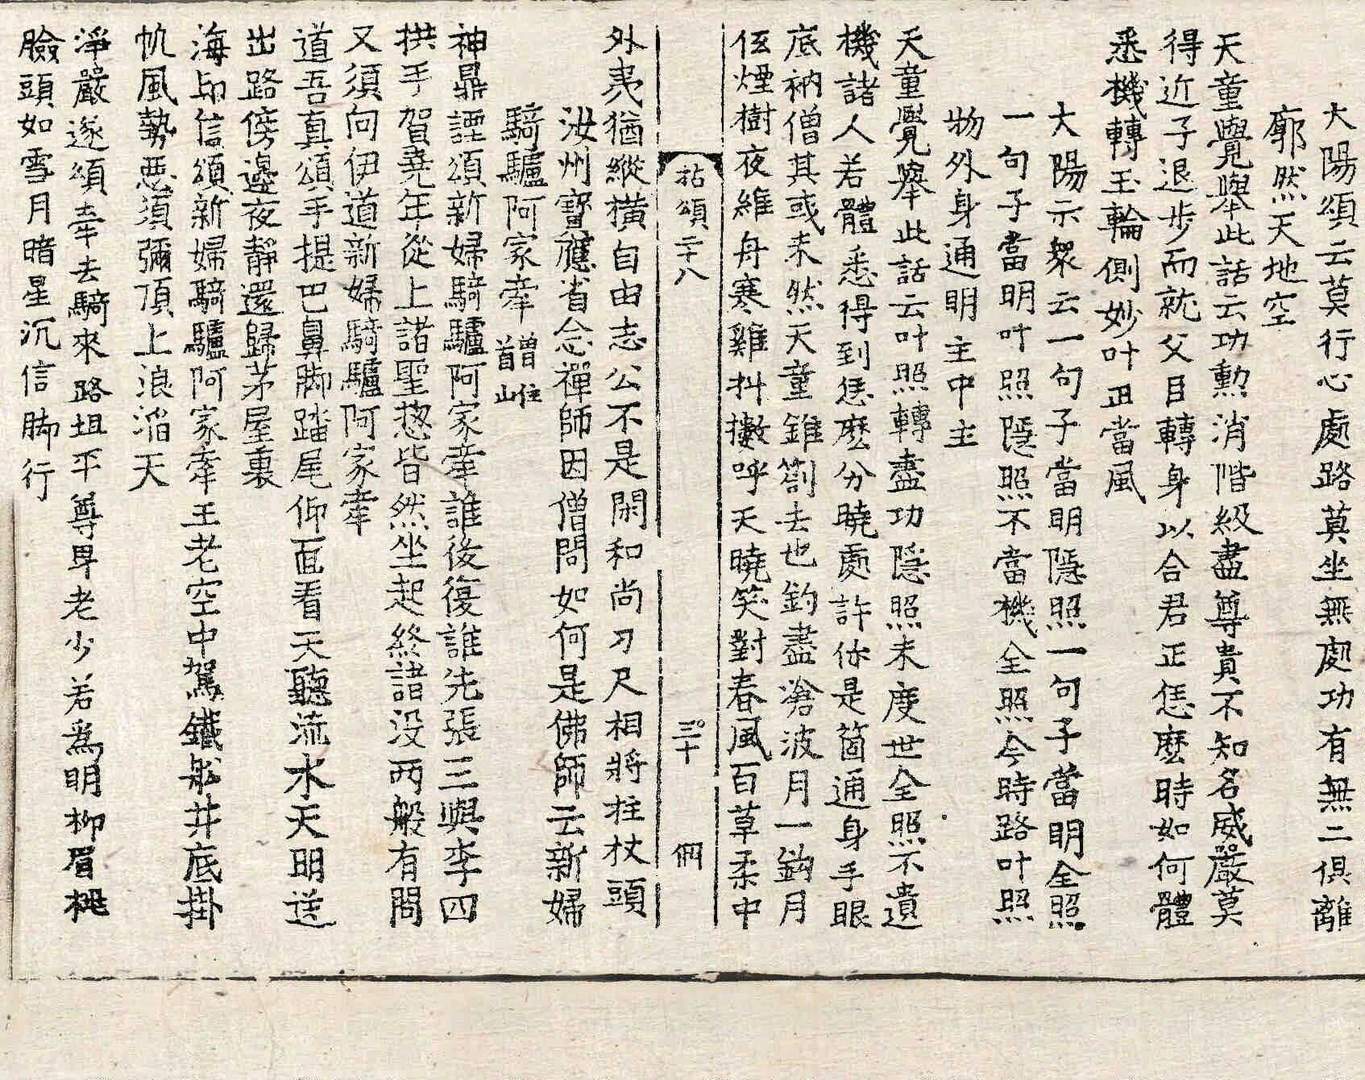 大陽頌云莫行心處路莫坐無處功有無二俱離
廓然天地空
天童覺舉此話云功勲消階級盡尊貴不知名威嚴莫
得近子退步而就父目轉身以合君正恁麽時如何體
悉機轉玉輪側妙叶正當風
大陽示衆云一句子當明隱照一句子當明全照
一句子當明叶照隱照不當機全照今時路叶照
物外身通明主中主
天童覺舉此話云叶照轉盡功隱照未度世全照不遺
機諸人若體悉得到恁麽分曉處許你是箇通身手眼
底衲僧其或未然天童錐劄去也釣盡滄波月一鈎月
伍煙樹夜維舟寒雞抖擻呼天曉笑對春風百草柔中
拈頌二十八
三十
外夷猶縱横自由志公不是閑和尚刀尺相將拄杖頭
汝州寳應省念禪師因僧問如何是佛師云新婦
騎驢阿家牽 僧住首山
神鼎諲頌新婦騎驢阿家牽誰後復誰先張三與李四
拱手賀堯年從上諸聖揔皆然坐起終諸没兩般有問
又須向伊道新婦騎驢阿家牽
道吾真頌手提巴鼻脚踏尾仰面看天聽流水天明送
出路傍邊夜静還歸茅屋裏
海印信頌新婦騎驢阿家牽王老空中駕鐵船井底掛
帆風勢惡須彌頂上浪滔天
淨嚴遂頌牽去騎來路坦平尊卑老少若爲明柳眉桃
臉頭如雪月暗星沉信脚行